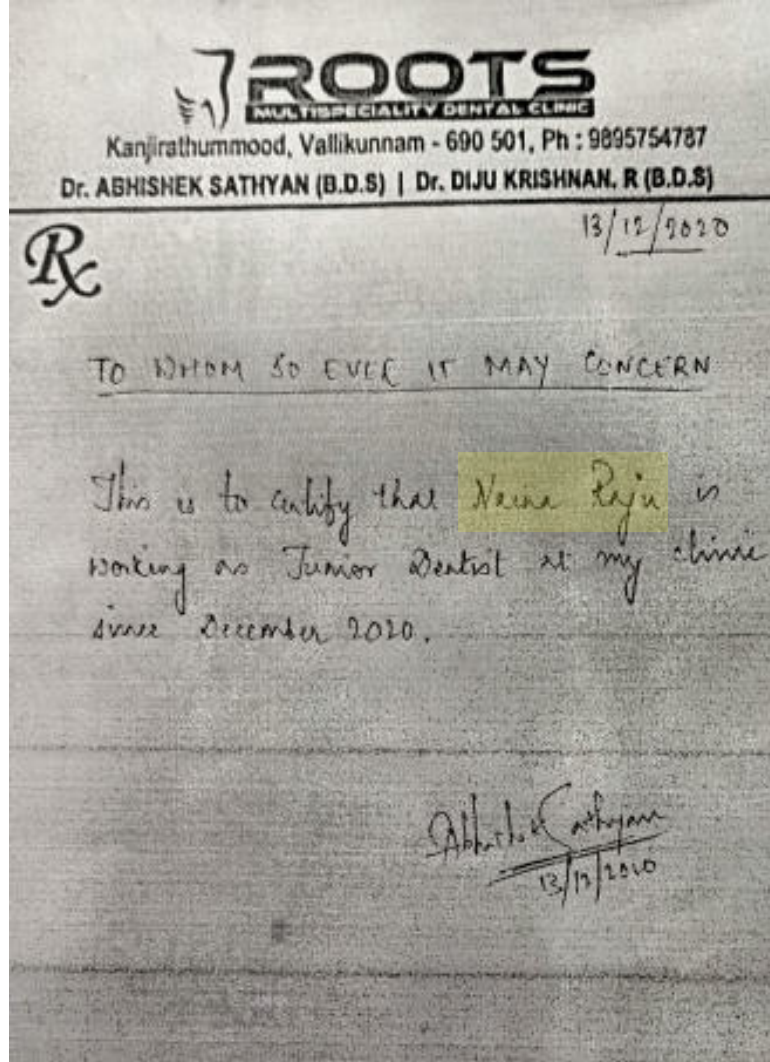 ROOTS
MULTISPECIALITY DENTAL CLINIC
Kanjirathummood, Vallikunnam - 690 501, Ph : 9895754787
Dr. ABHISHEK SATHYAN (B.D.S) | Dr. DIJU KRISHNAN. R (B.D.S)
13/12/2020
Rx
TO WHOM SO EVER IT MAY CONCERN
This is to certify that Naina Raju is
working as Junior Dentist at my clinic
since December 2020.
Abhishek Sathyan
13/12/2020